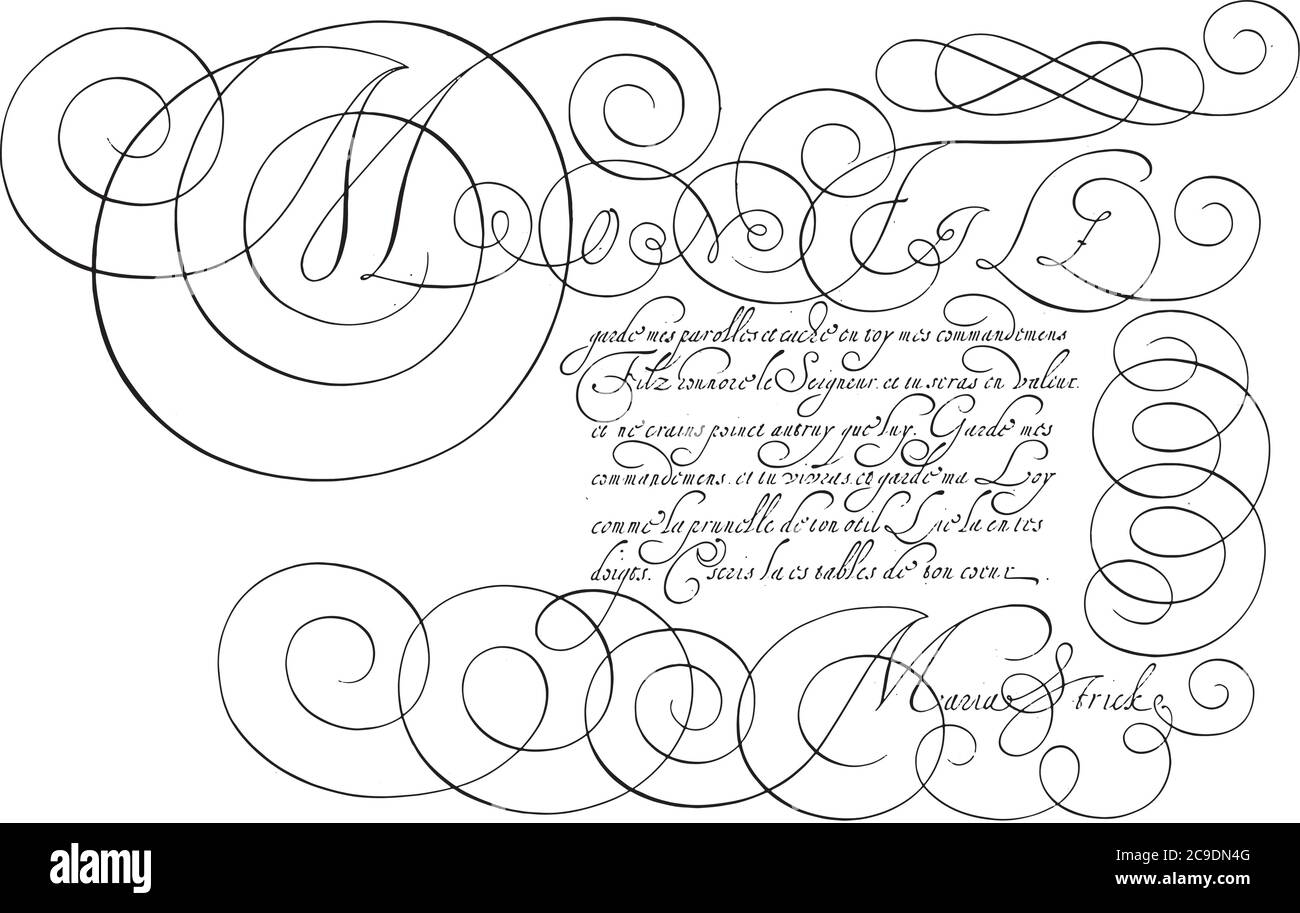 Mon FilZ
garde mes parolles et cache en toy mes commandemens
Filz honnore le Seigneur. et tu seras en valeur.
et ne crains poinct autruy que luy. Garde mes
commandemens. et tu vivras. et garde ma Loy
comme la prunelle de ton oeil Lie la en tes
doigts. Escris la es tables de ton coeur.
Maria Strick
alamy
Image ID: 2C9DN4G
www.alamy.com